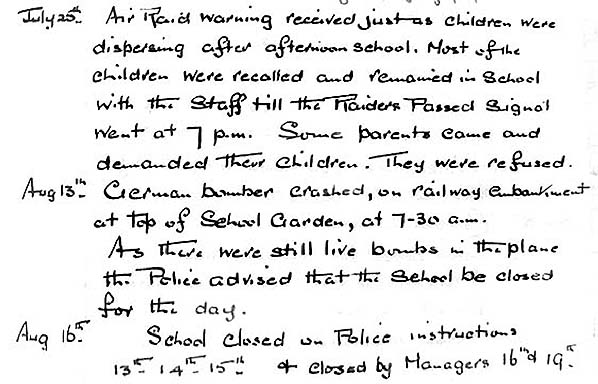 July 25th Air Raid Warning received just as children were
dispersing after afternoon school. Most of the
children were recalled and remained in School
with the Staff till the Raiders Passed Signal
went at 7 p.m. Some parents came and
demanded their children. They were refused.
Aug 13th German bomber crashed, on railway embankment
at top of School Garden, at 7-30 a.m.
As there were still live bombs in the plane
the Police advised that the School be closed
for the day.
Aug 16th School closed on Police instructions
13th 14th 15th & closed by Managers 16th & 19th